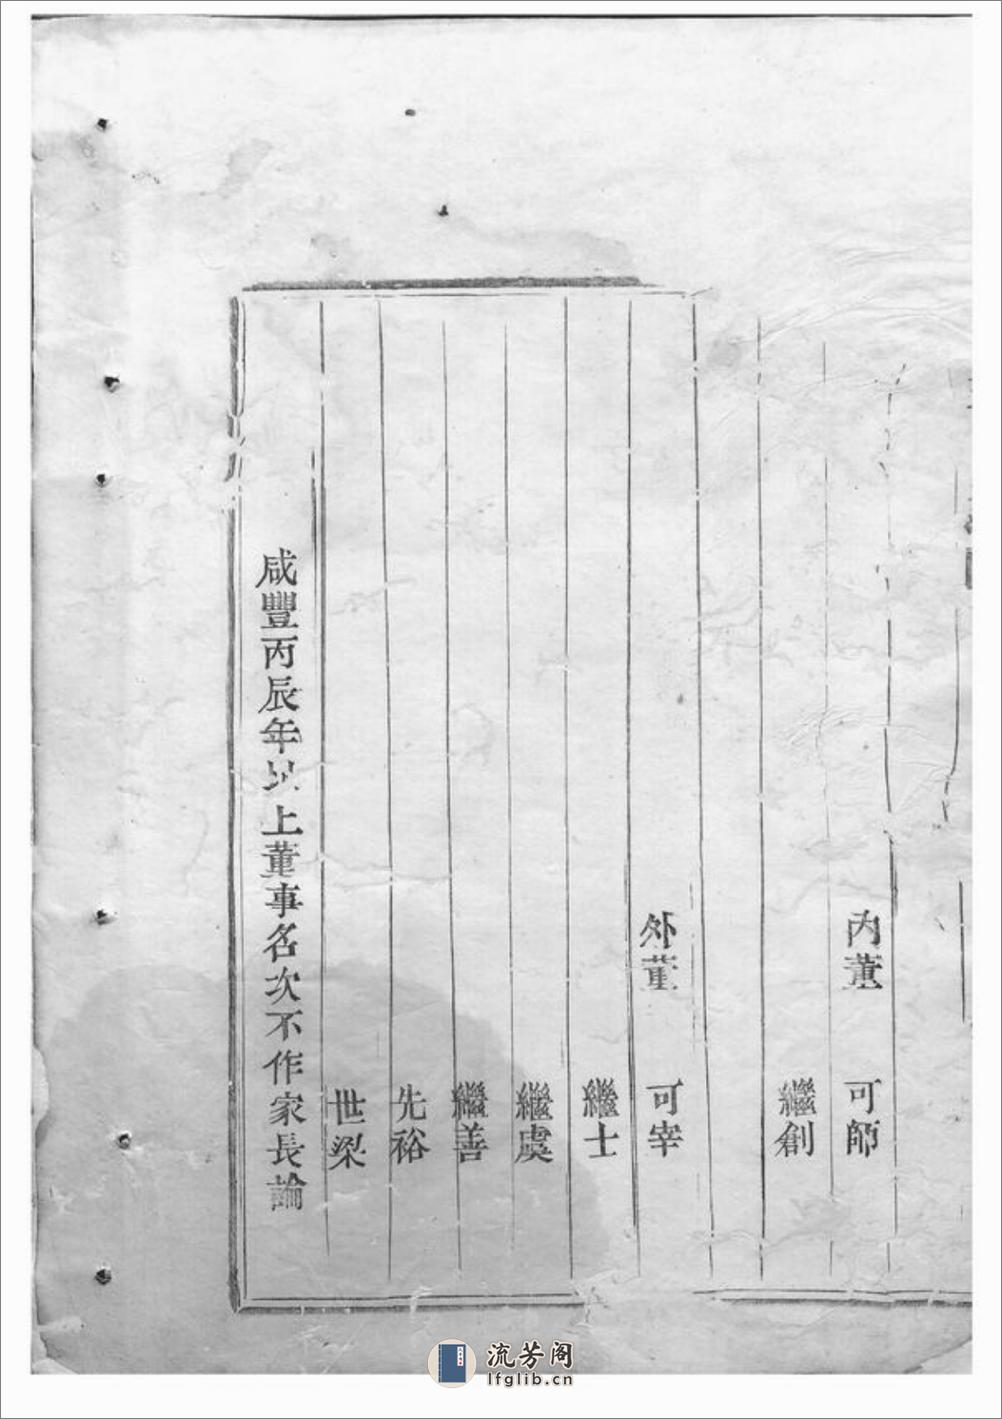 內董 可師
繼創
外董 可宰
繼士
繼虞
繼善
先裕
世梁
咸豐丙辰年以上董事名次不作家長論
流芳阁
lfglib.cn